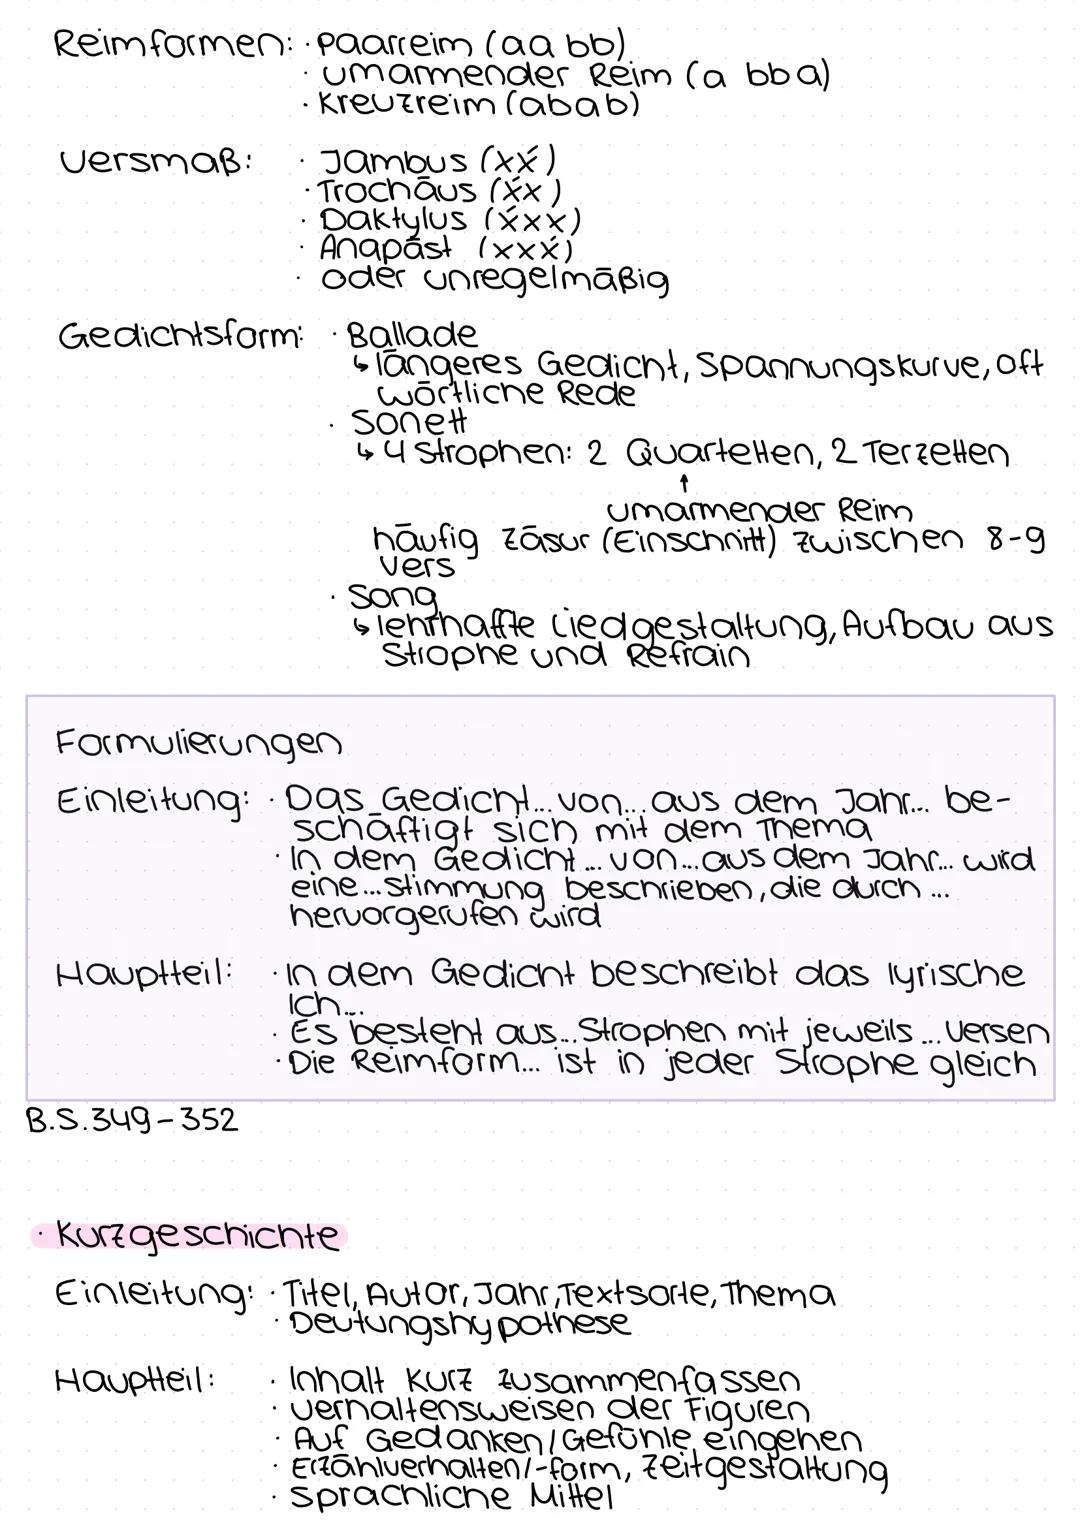 Reimformen: · Paarreim (aa bb)
· umarmender Reim (a bb a)
· Kreuzreim (abab)
Versmaß: · Jambus (xx́)
· Trochäus (x́x)
· Daktylus (x́xx)
· Anapäst (xxx́)
· oder unregelmäßig
Gedichtsform: · Ballade
↳ längeres Gedicht, Spannungskurve, oft
wörtliche Rede
· Sonett
↳ 4 Strophen: 2 Quartetten, 2 Terzetten
↑
umarmender Reim
häufig Zäsur (Einschnitt) zwischen 8-9
Vers
· Song
↳ lehrhaffte Liedgestaltung, Aufbau aus
Strophe und Refrain
Formulierungen
Einleitung: · Das Gedicht... von... aus dem Jahr... be-
schäftigt sich mit dem Thema
· In dem Gedicht... von... aus dem Jahr... wird
eine... Stimmung beschrieben, die durch ...
hervorgerufen wird
Hauptteil: · In dem Gedicht beschreibt das lyrische
Ich...
· Es besteht aus... Strophen mit jeweils ... Versen
· Die Reimform... ist in jeder Strophe gleich
B.S.349-352
· Kurzgeschichte
Einleitung: · Titel, Autor, Jahr, Textsorte, Thema
· Deutungshypothese
Hauptteil: · Inhalt kurz zusammenfassen
· Verhaltensweisen der Figuren
· Auf Gedanken/Gefühle eingehen
· Erzählverhalten/-form, Zeitgestaltung
· sprachliche Mittel